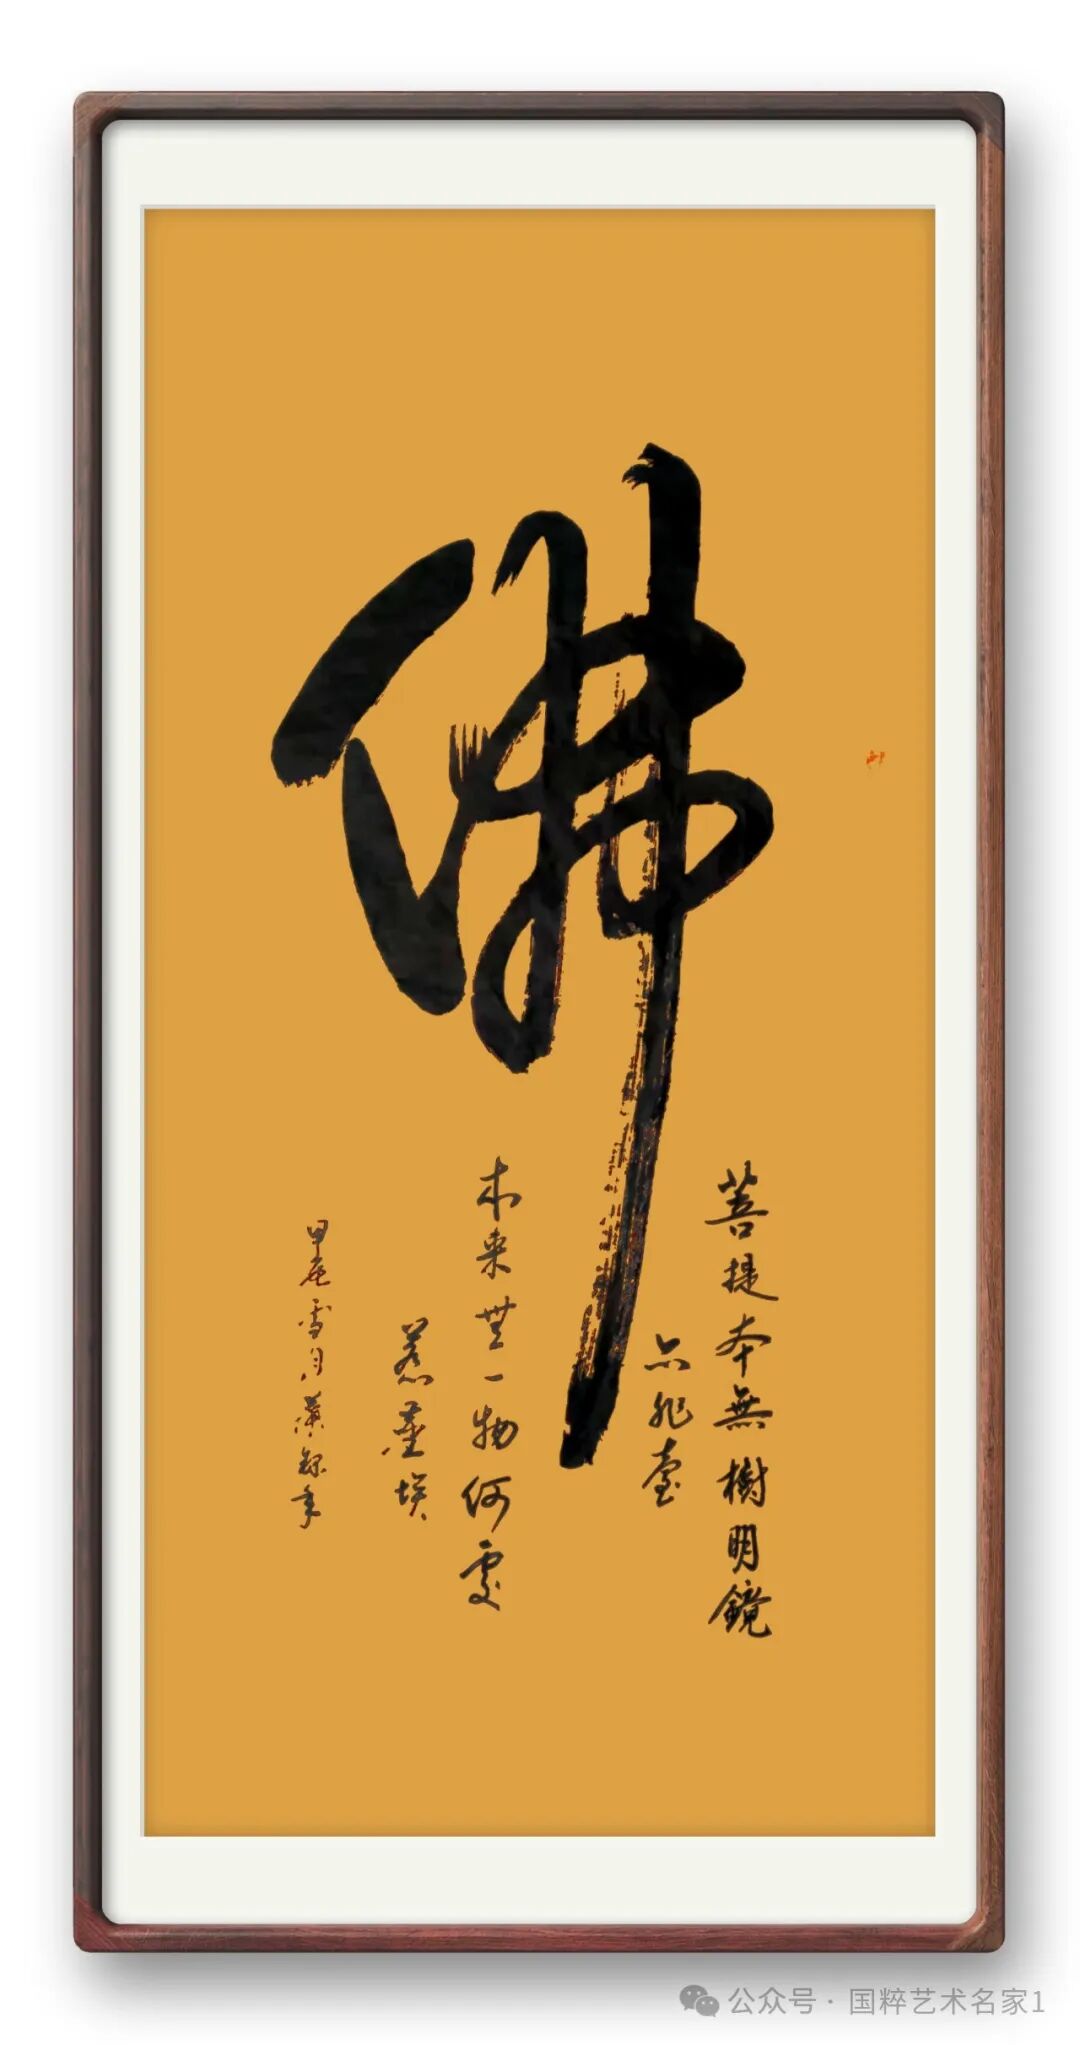 佛
菩提本無樹明鏡
亦非臺
本來無一物何處
惹塵埃
甲辰雪月
公众号 · 国粹艺术名家1